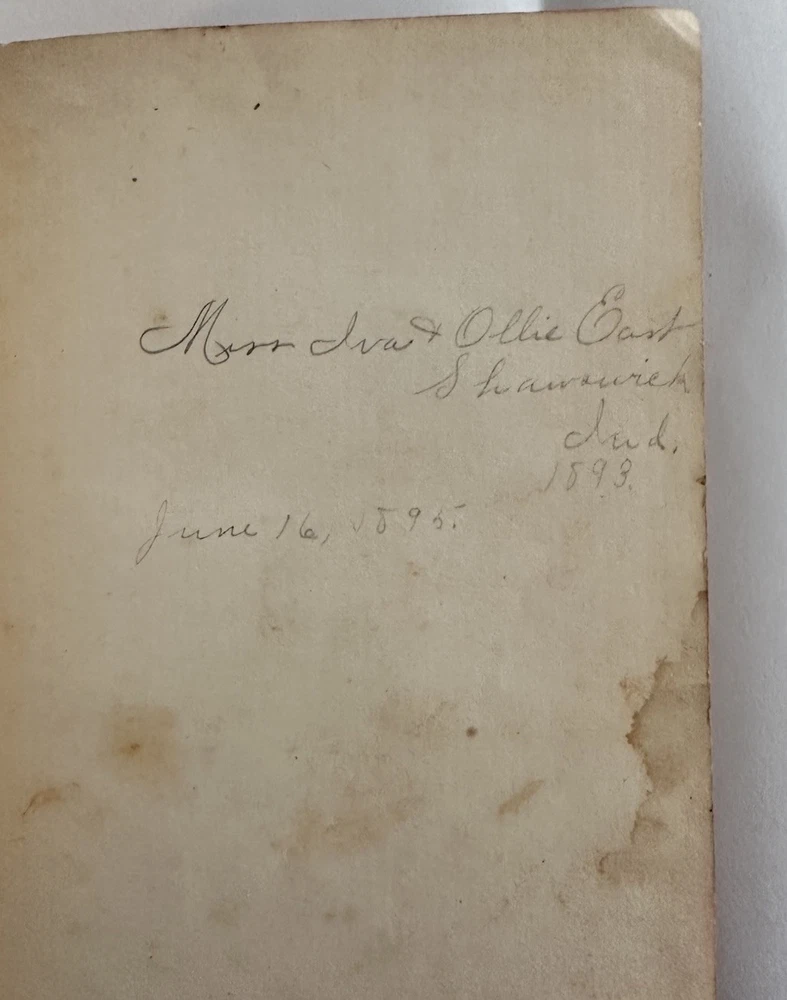 Miss Iva & Ollie East
Shawswick
Ind.
1893.
June 16, 1895.